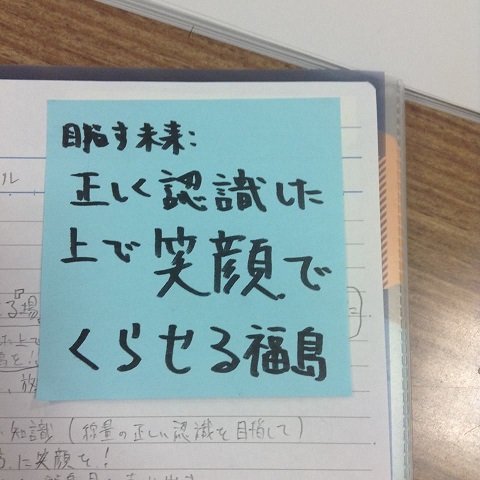 目指す未来:
正しく認識した
上で笑顔で
くらせる福島
ル
る場
知識(線量の正しい認識を目指して)
に笑顔を!